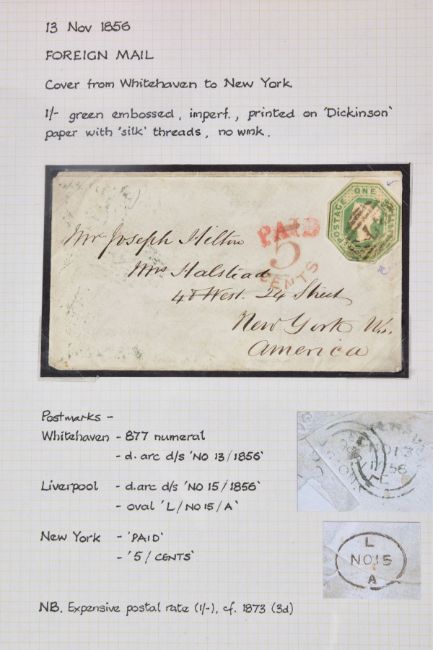 13 Nov 1856
FOREIGN MAIL
Cover from Whitehaven to New York
1/- green embossed, imperf., printed on 'Dickinson'
paper with 'silk' threads, no wmk.
POSTAGE ONE
PAID
5
CENTS
Mr Joseph Hilton
Mrs Halstead
48 West. 24 Street
New York Us.
America
Postmarks -
Whitehaven - 877 numeral
- d. arc d/s 'NO 13/1856'
Liverpool - d.arc d/s 'NO 15/1856'
- oval 'L/NO15/A'
New York - 'PAID'
- '5/CENTS'
L
NO15
A
NB. Expensive postal rate (1/-), cf. 1873 (3d)